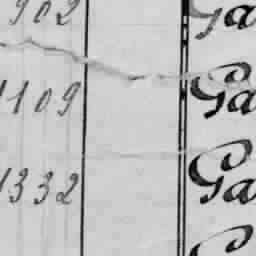 902 Ga
1109 Ga
1332 Ga